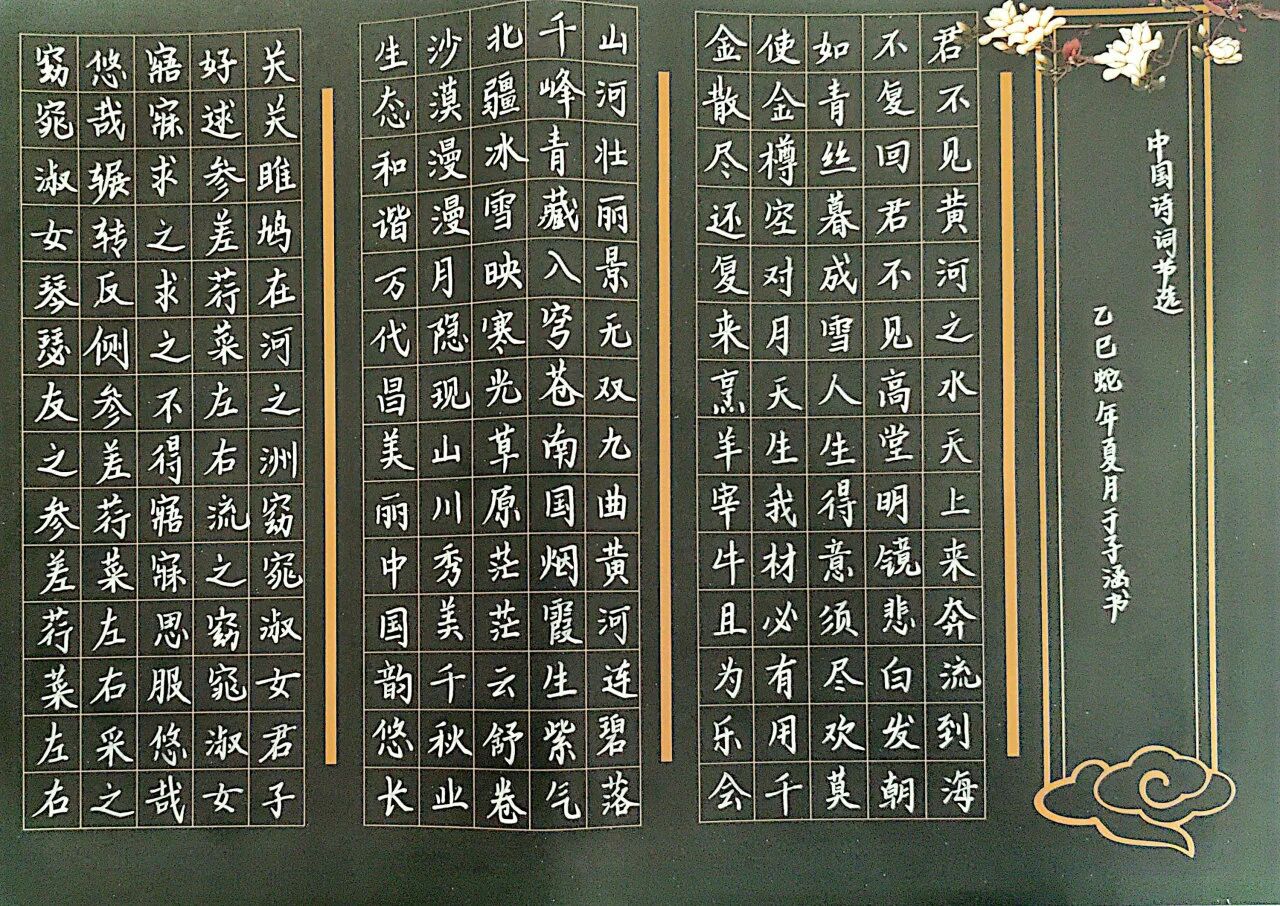 中国诗词节选
乙巳蛇年夏月于子涵书
君不见黄河之水天上来奔流到海
不复回君不见高堂明镜悲白发朝
如青丝暮成雪人生得意须尽欢莫
使金樽空对月天生我材必有用千
金散尽还复来烹羊宰牛且为乐会
山河壮丽景无双九曲黄河连碧落
千峰青藏入穹苍南国烟霞生紫气
北疆冰雪映寒光草原茫茫云舒卷
沙漠漫漫月隐现山川秀美千秋业
生态和谐万代昌美丽中国韵悠长
关关雎鸠在河之洲窈窕淑女君子
好逑参差荇菜左右流之窈窕淑女
寤寐求之求之不得寤寐思服悠哉
悠哉辗转反侧参差荇菜左右采之
窈窕淑女琴瑟友之参差荇菜左右